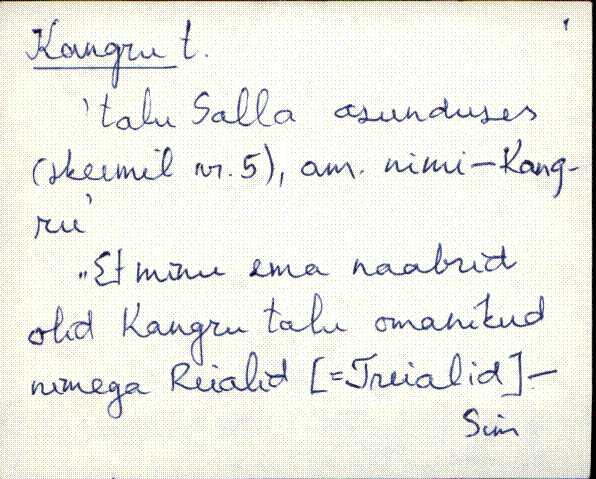 Kangru t.
'talu Salla asunduses
(skeemil nr. 5), am. nimi – Kang-
ru'
„Et minu ema naabrid
olid Kangru talu omanikud
nimega Reialid [=Treialid] –
Siin